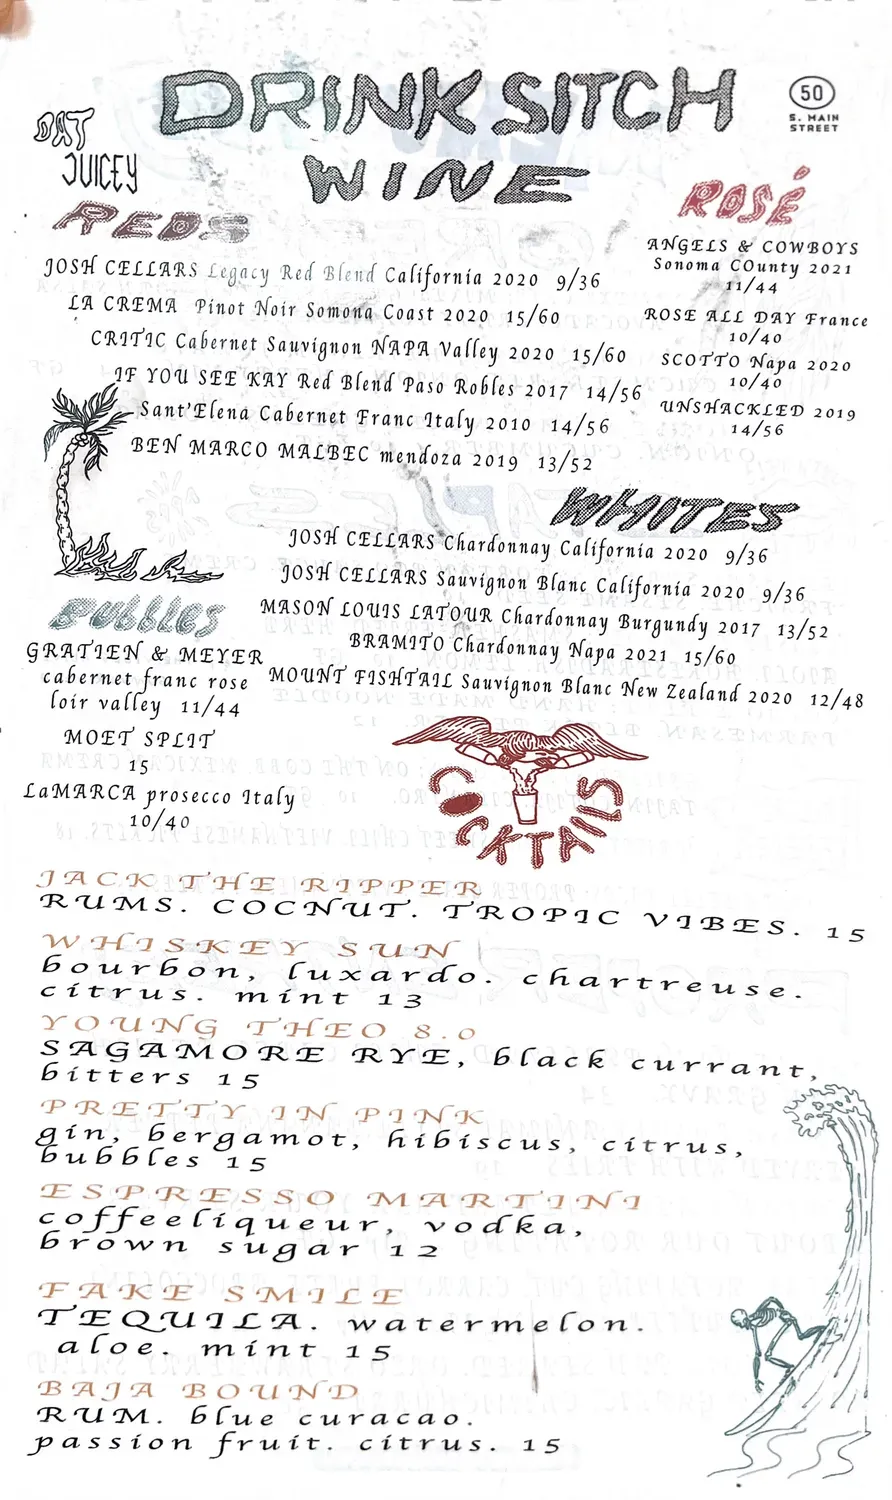 DRINK SITCH
50
S. MAIN
STREET
DAT
JUICEY
WINE
REDS
JOSH CELLARS Legacy Red Blend California 2020 9/36
LA CREMA Pinot Noir Somona Coast 2020 15/60
CRITIC Cabernet Sauvignon NAPA Valley 2020 15/60
IF YOU SEE KAY Red Blend Paso Robles 2017 14/56
Sant'Elena Cabernet Franc Italy 2010 14/56
BEN MARCO MALBEC mendoza 2019 13/52
ROSÉ
ANGELS & COWBOYS
Sonoma COunty 2021
11/44
ROSE ALL DAY France
10/40
SCOTTO Napa 2020
10/40
UNSHACKLED 2019
14/56
WHITES
JOSH CELLARS Chardonnay California 2020 9/36
JOSH CELLARS Sauvignon Blanc California 2020 9/36
MASON LOUIS LATOUR Chardonnay Burgundy 2017 13/52
BRAMITO Chardonnay Napa 2021 15/60
MOUNT FISHTAIL Sauvignon Blanc New Zealand 2020 12/48
Bubbles
GRATIEN & MEYER
cabernet franc rose
loir valley 11/44
MOET SPLIT
15
LaMARCA prosecco Italy
10/40
COCKTAILS
JACK THE RIPPER
RUMS. COCNUT. TROPIC VIBES. 15
WHISKEY SUN
bourbon, luxardo. chartreuse.
citrus. mint 13
YOUNG THEO 8.0
SAGAMORE RYE, black currant,
bitters 15
PRETTY IN PINK
gin, bergamot, hibiscus, citrus,
bubbles 15
ESPRESSO MARTINI
coffeeliqueur, vodka,
brown sugar 12
FAKE SMILE
TEQUILA. watermelon.
aloe. mint 15
BAJA BOUND
RUM. blue curacao.
passion fruit. citrus. 15